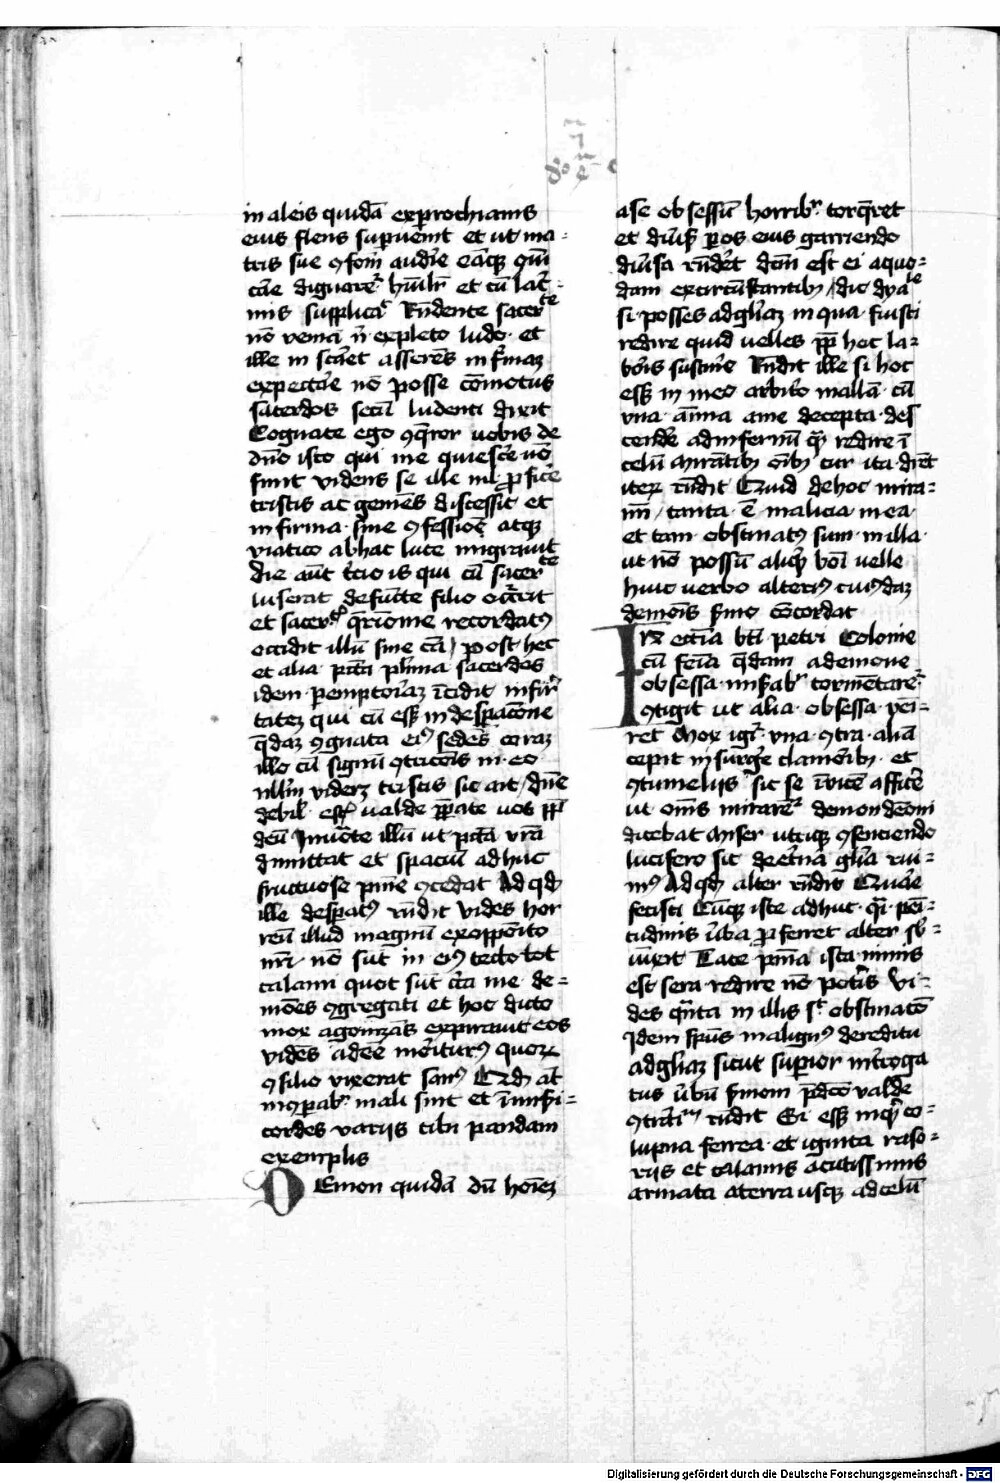 in aleis quidā exprochianis
eius flens supuenit et ut ma-
tris sue ꝯfom̄ audiᷓe eāqꝫ oīm
dignareᷓ hūilr̄ et cū lac̄-
mis supplicaᷓ Rn̄dente sacerte
nō veniā n̄ expleto ludo et
ille in stār̄et asserēs infirmaꝫ
expectaᷓe nō posse cōmotus
sacerdos secū ludenti dixit
Cognate ego ꝯq̄ror vobis de
dn̄o isto qui me quiescᷓe nō
sinit videns se ille nil ꝓficᷓe
tristis ac gemēs discessit et
infirma sine ꝯfessiōe atqꝫ
viatico ab hac luce migravit
die aūt tᷓcio is qui cū sacerte
luserat defuncte filio occᷓrit
et sacerte q̄rionie recordatꝰ
occidit illū sine cā / post hec
et alia pctā plīma sacerdos
idem pemptoriaꝫ īcidit infirᷓ
tateꝫ qui cū essꝫ in despacōne
q̄daꝫ ꝯgnata eiꝰ sedēs coraꝫ
illo cū signū ꝯtricōis in eo
nllm̄ viderꝫ tristis sic ait / dn̄e
debilᷓ estꝭ valde ꝑpate vos ꝓpt̄
deū Invocᷓte illū ut pctā vrā
dimittat et spaciū adhuc
fructuose pnīe ꝯcedat Ad qd̄
ille despatꝰ rn̄dit vides hor
reū illud magnū exoppōito
nr̄i nō sūt in eiꝰ tecto tot
calami quot sūt cᷓca me de-
mōes ꝯgregati et hoc dicto
mox agonizās expiravit eos
vidēs ad eē moriturꝰ quoꝝ
ꝯsilio vixerat sanꝰ Qd̄ aūt
inꝯpabᷓ mali sint et īmisᷓi-
cordes variis tibi pandam
exemplis
Demon quidā dū hoīeꝫ
ase obsessū horribᷓ torq̄ret
et divᷓsꝭ ꝑ os eius garriendo
divᷓsa rn̄dēt dcm̄ est ei a quo-
dam ex circūstantibꝫ / dic dyale
si posses ad gloriaꝫ in qua fuisti
redire quid velles ꝓpt̄ hec la-
bōis sustinᷓe Rn̄dit ille si hoc
essꝫ in meo arbitᷓo mallā cū
vna aīma a me decepta des
cendᷓe ad infernū qᷓ redire ī
celū Mirātibꝫ oībꝫ cur ita dicᷓet
iteꝝ rn̄dit Quid de hoc mira-
mī / tanta ē malicia mea
et tam obstinatꝰ sum in illa
ut nō possū aliqd̄ boni velle
huic verbo alteriꝰ cuiꝰdaꝫ
demōis sᷓmo cōcordat
In eccia btī petri Colonie
cū feīa q̄dam a demone
obsessa misᷓabᷓ tormētareᷓ
ꝯtigit ut alia obsessa vēi-
ret Mox igᷓ vna ꝯtra aliā
cepit insurgᷓe clamōibꝫ et
ꝯtumeliis sic se īvicē afficᷓe
ut oms mirareᷓ demon demōi
dicebat Miser utiqꝫ ꝯsenciendo
lucifero sic de eterna gloria rui-
mꝰ Ad qd̄ alter rn̄dit Quare
fecisti Cūqꝫ iste adhuc qᷓi pēi-
tudinis vᷓba ꝓferret alter sub
iunxit Tace pnīa ista nimis
est sera redire nō potᷓis Vi-
des qᷓnta in illis sit obstinacō
Idem spūs malignꝰ de reditu
ad gliaꝫ sicut superior intᷓroga
tus vᷓbū sᷓmoni pd̄co valde
ꝯtrariū rn̄dit Si essꝫ inqᷓt co-
lupna ferrea et ignita raso-
riis et calamis acutissimis
armata a terra usqꝫ ad celū
Digitalisierung gefördert durch die Deutsche Forschungsgemeinschaft - DFG